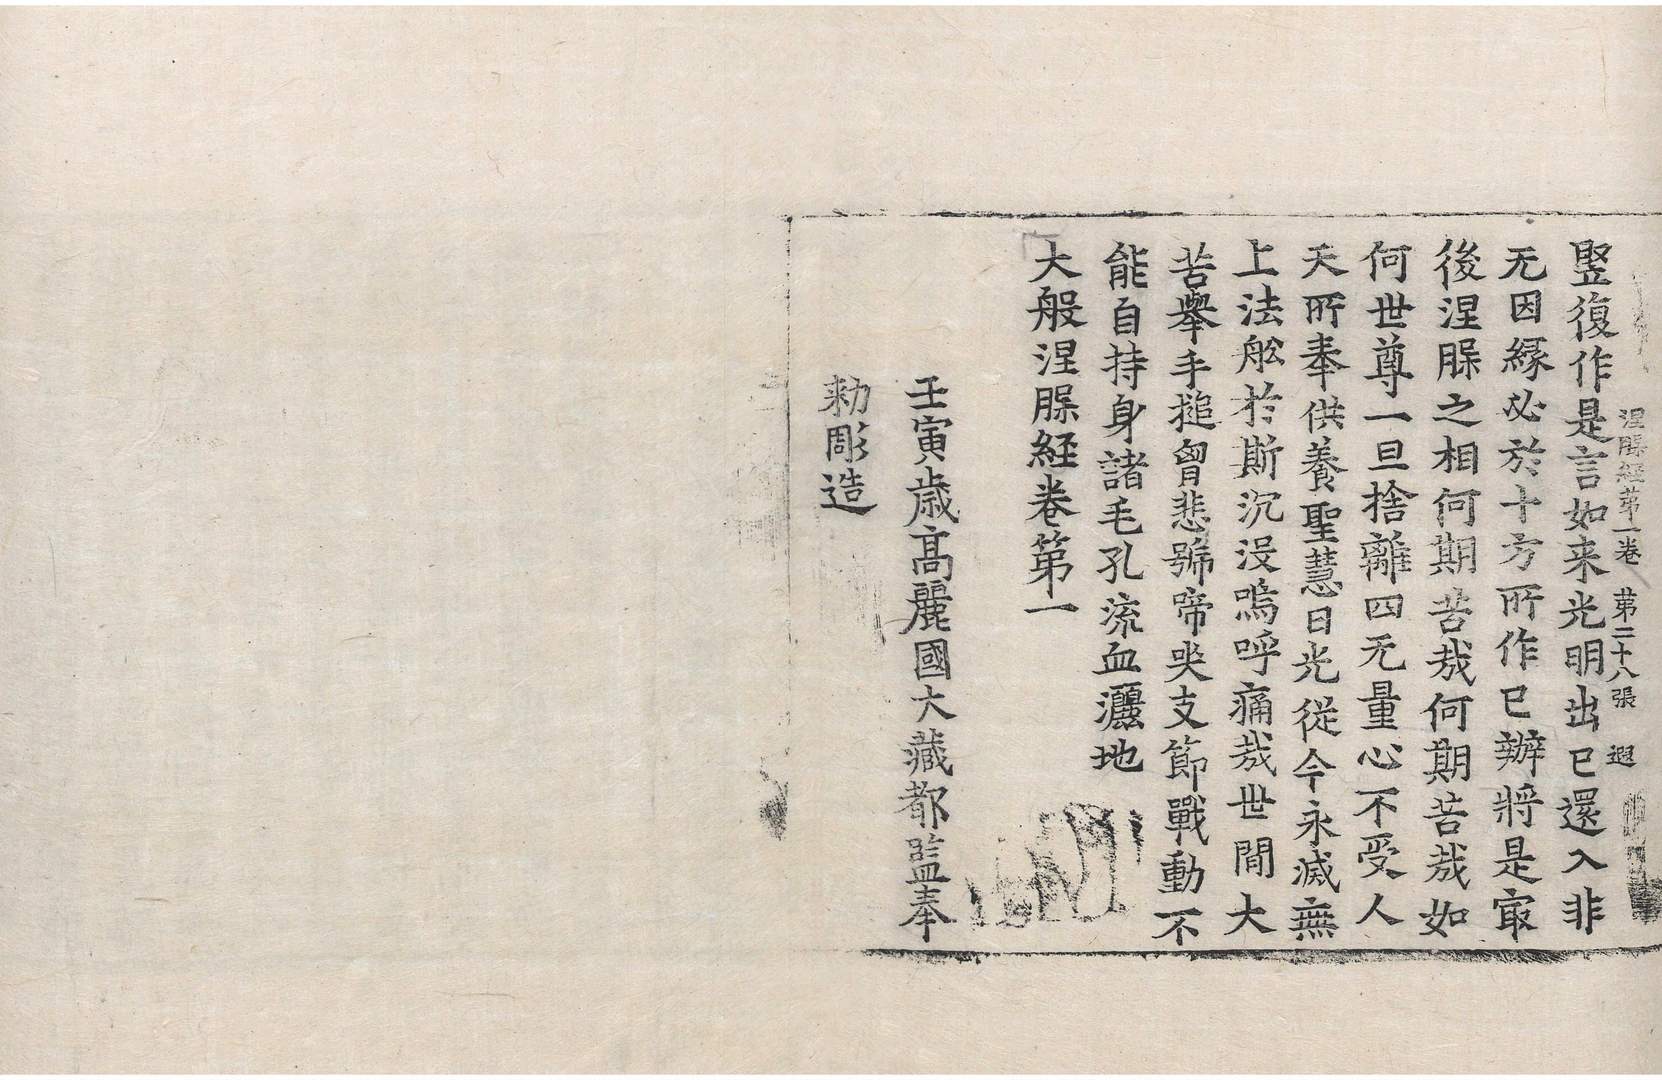 涅槃經第一卷 第二十八張 遐
豎復作是言如来光明出已還入非
无因緣必於十方所作已辦將是冣
後涅槃之相何期苦哉何期苦哉如
何世尊一旦捨離四无量心不受人
天所奉供養聖慧日光從今永滅無
上法舩於斯沉没嗚呼痛哉世閒大
苦舉手搥胷悲號啼哭支節戰動不
能自持身諸毛孔流血灑地
大般涅槃經卷第一
壬寅歳高麗國大藏都監奉
勑彫造